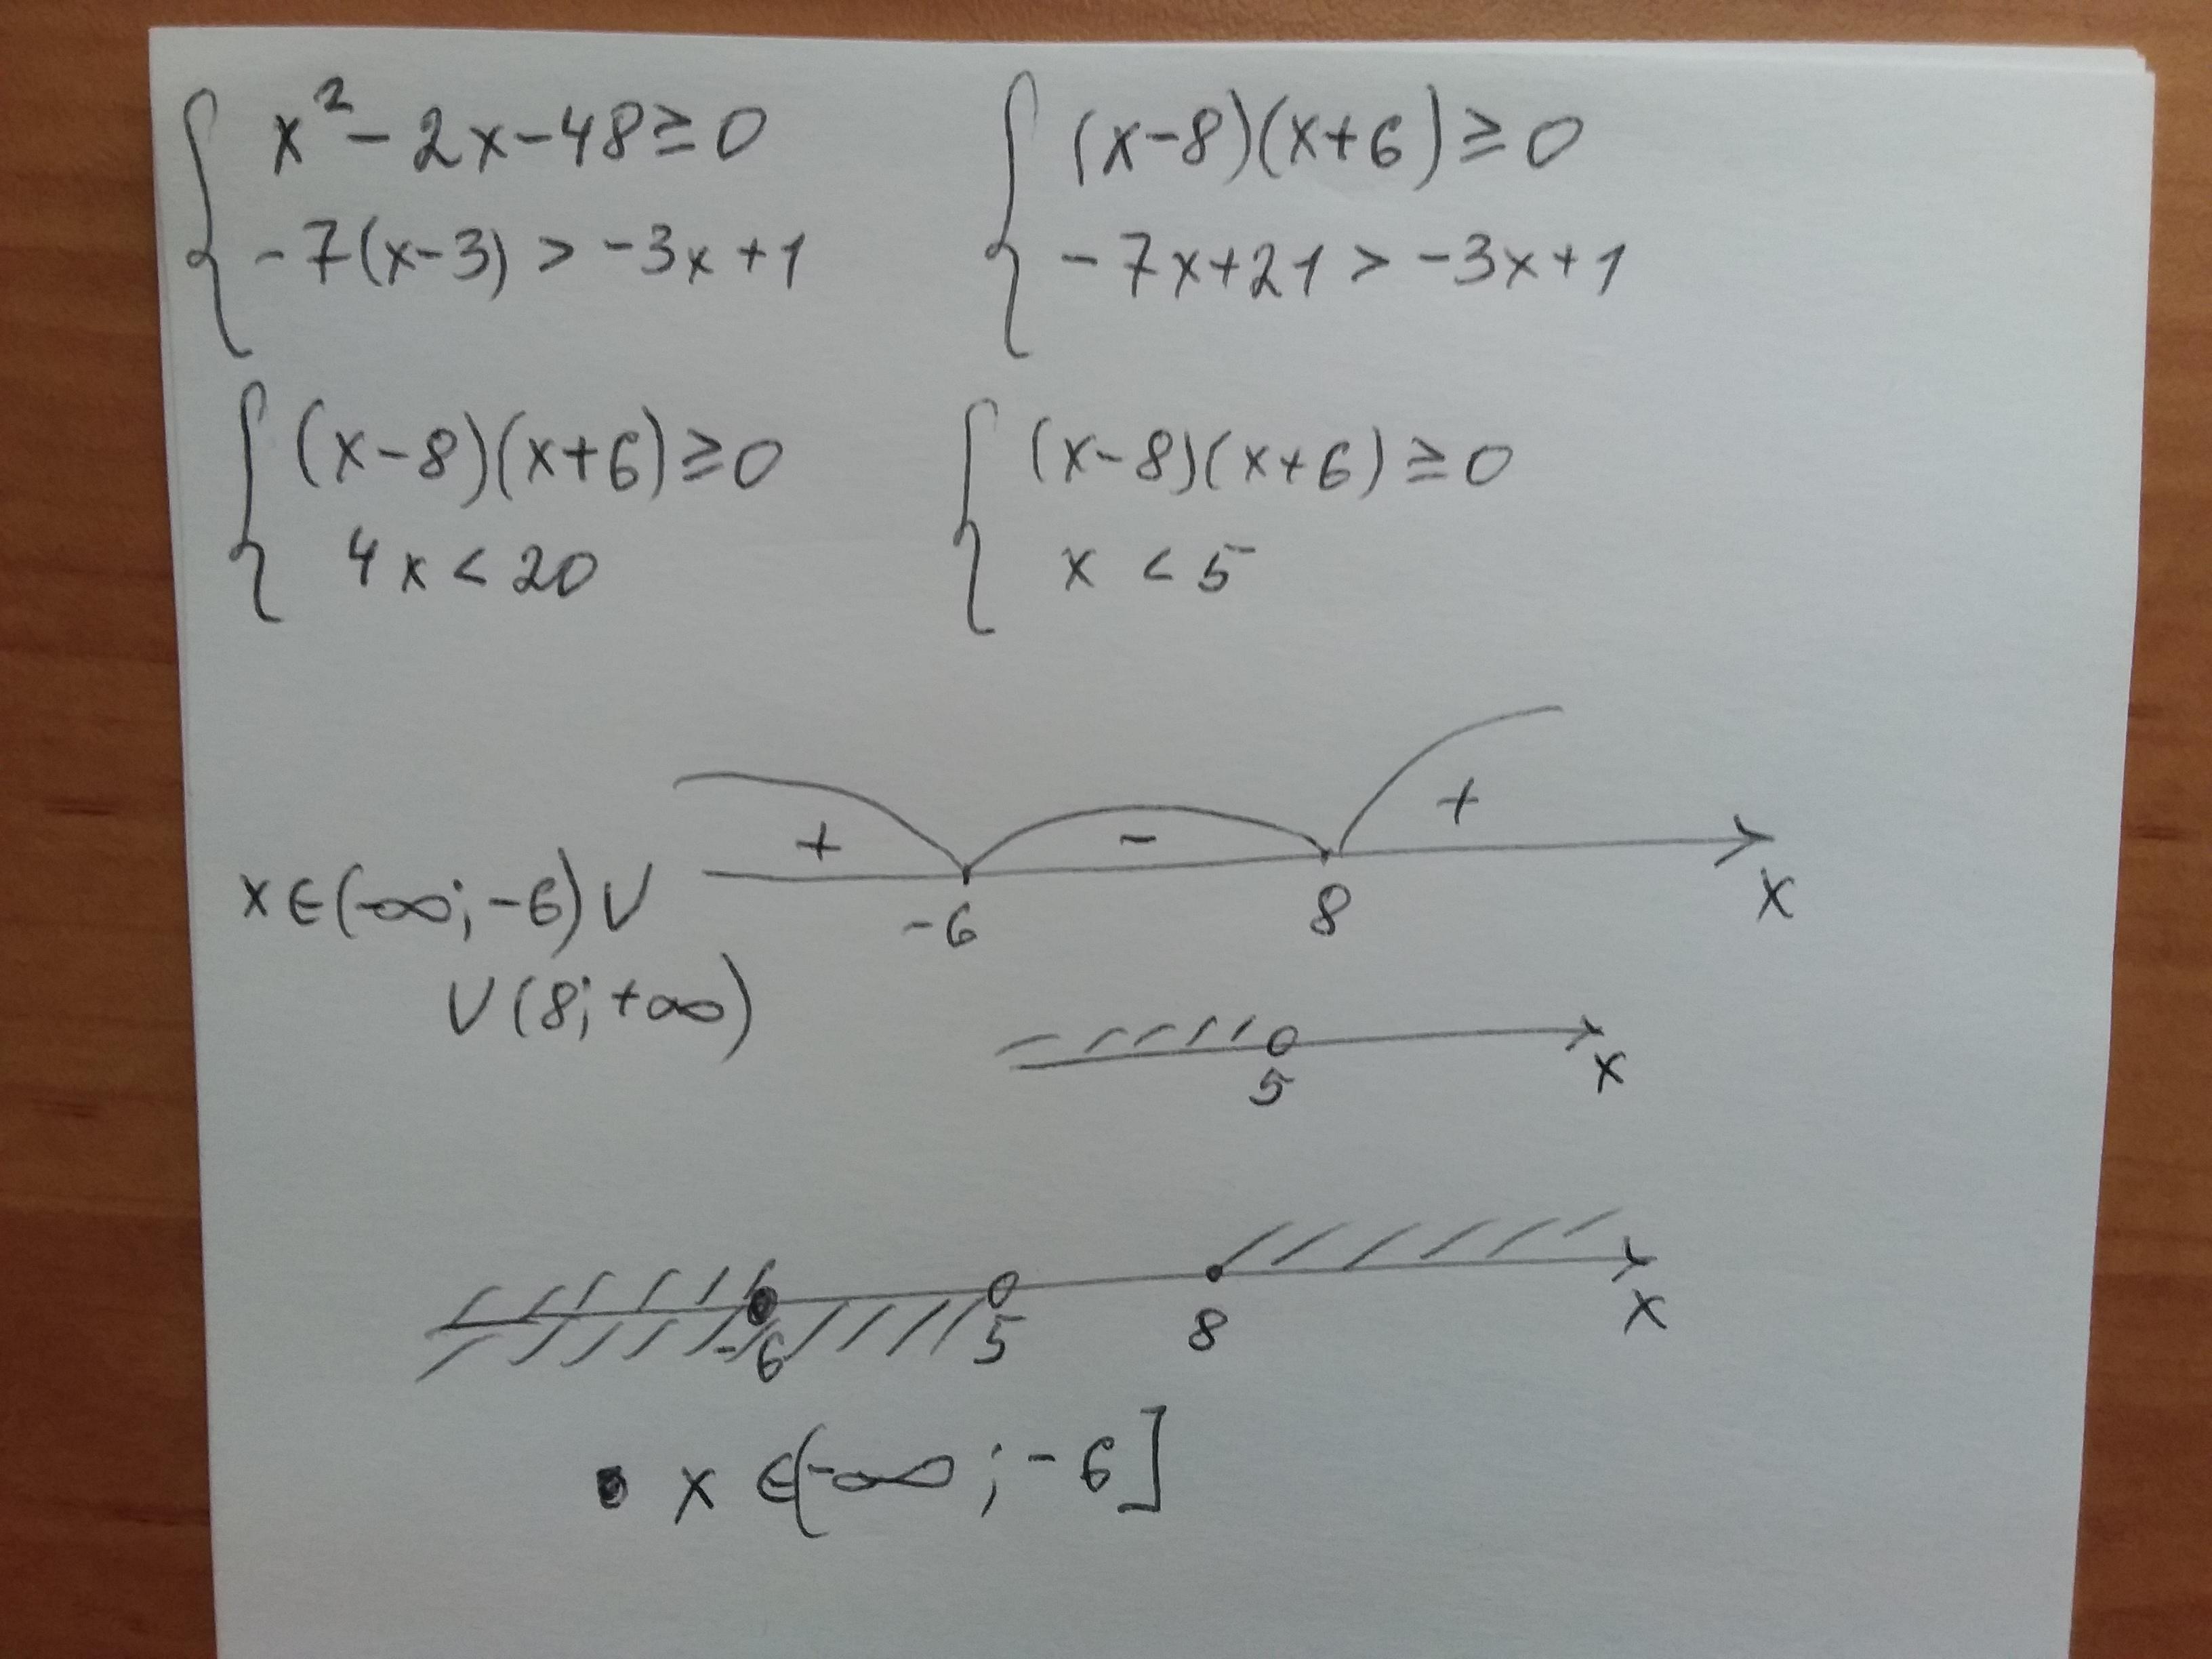 x² - 2x - 48 ≥ 0
-7(x-3) > -3x + 1
(x-8)(x+6) ≥ 0
-7x + 21 > -3x + 1
(x-8)(x+6) ≥ 0
4x < 20
(x-8)(x+6) ≥ 0
x < 5
+ - +
-6 8 x
x ∈ (-∞; -6) ∪
∪ (8; +∞)
5 x
-6 5 8 x
x ∈ (-∞; -6]